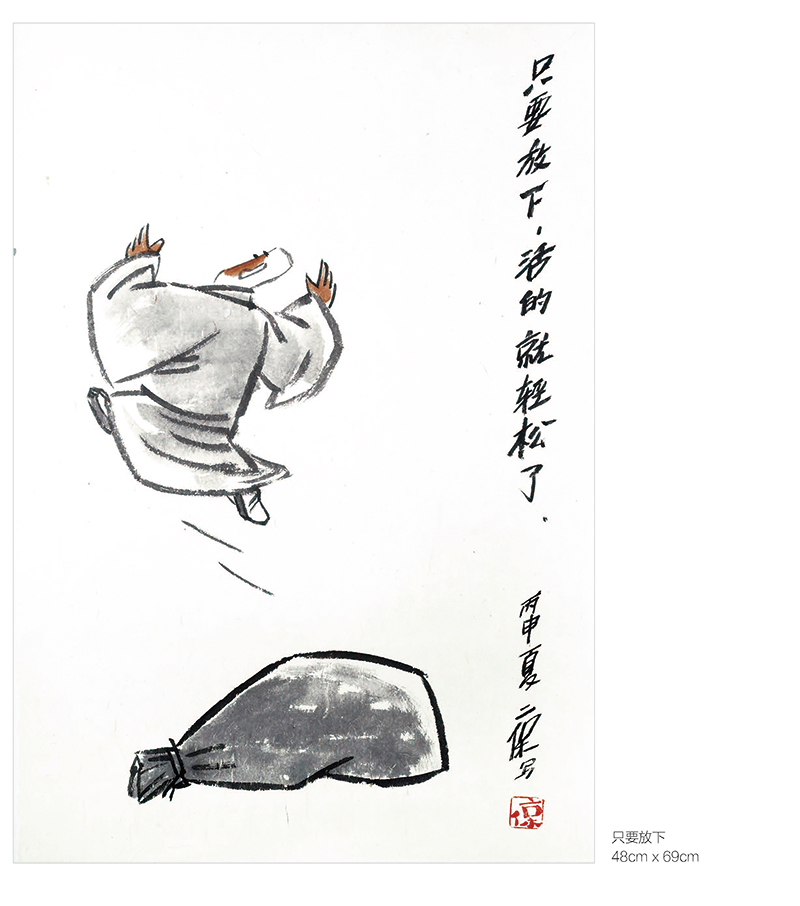 只要放下，活的就轻松了．
丙申夏二保写
只要放下
48cm x 69cm